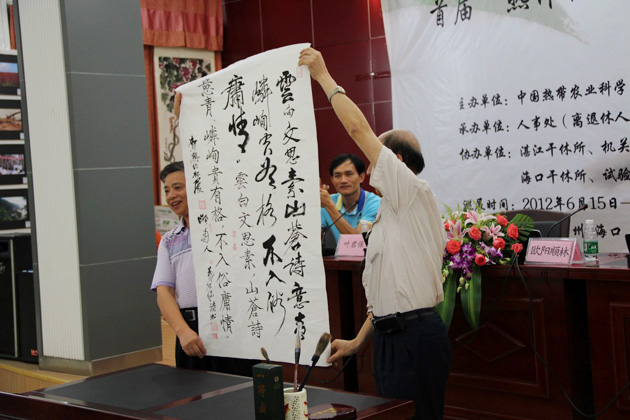 雲白文思素山蒼詩意貴
嶙峋貴有格不入俗
庸情雲白文思素山蒼詩
意貴嶙峋貴有格不入俗庸情
首届
主办单位：中国热带农业科学
承办单位：人事处（离退休人
协办单位：湛江干休所、机关
海口干休所、试验
2012年6月15
欧阳顺林